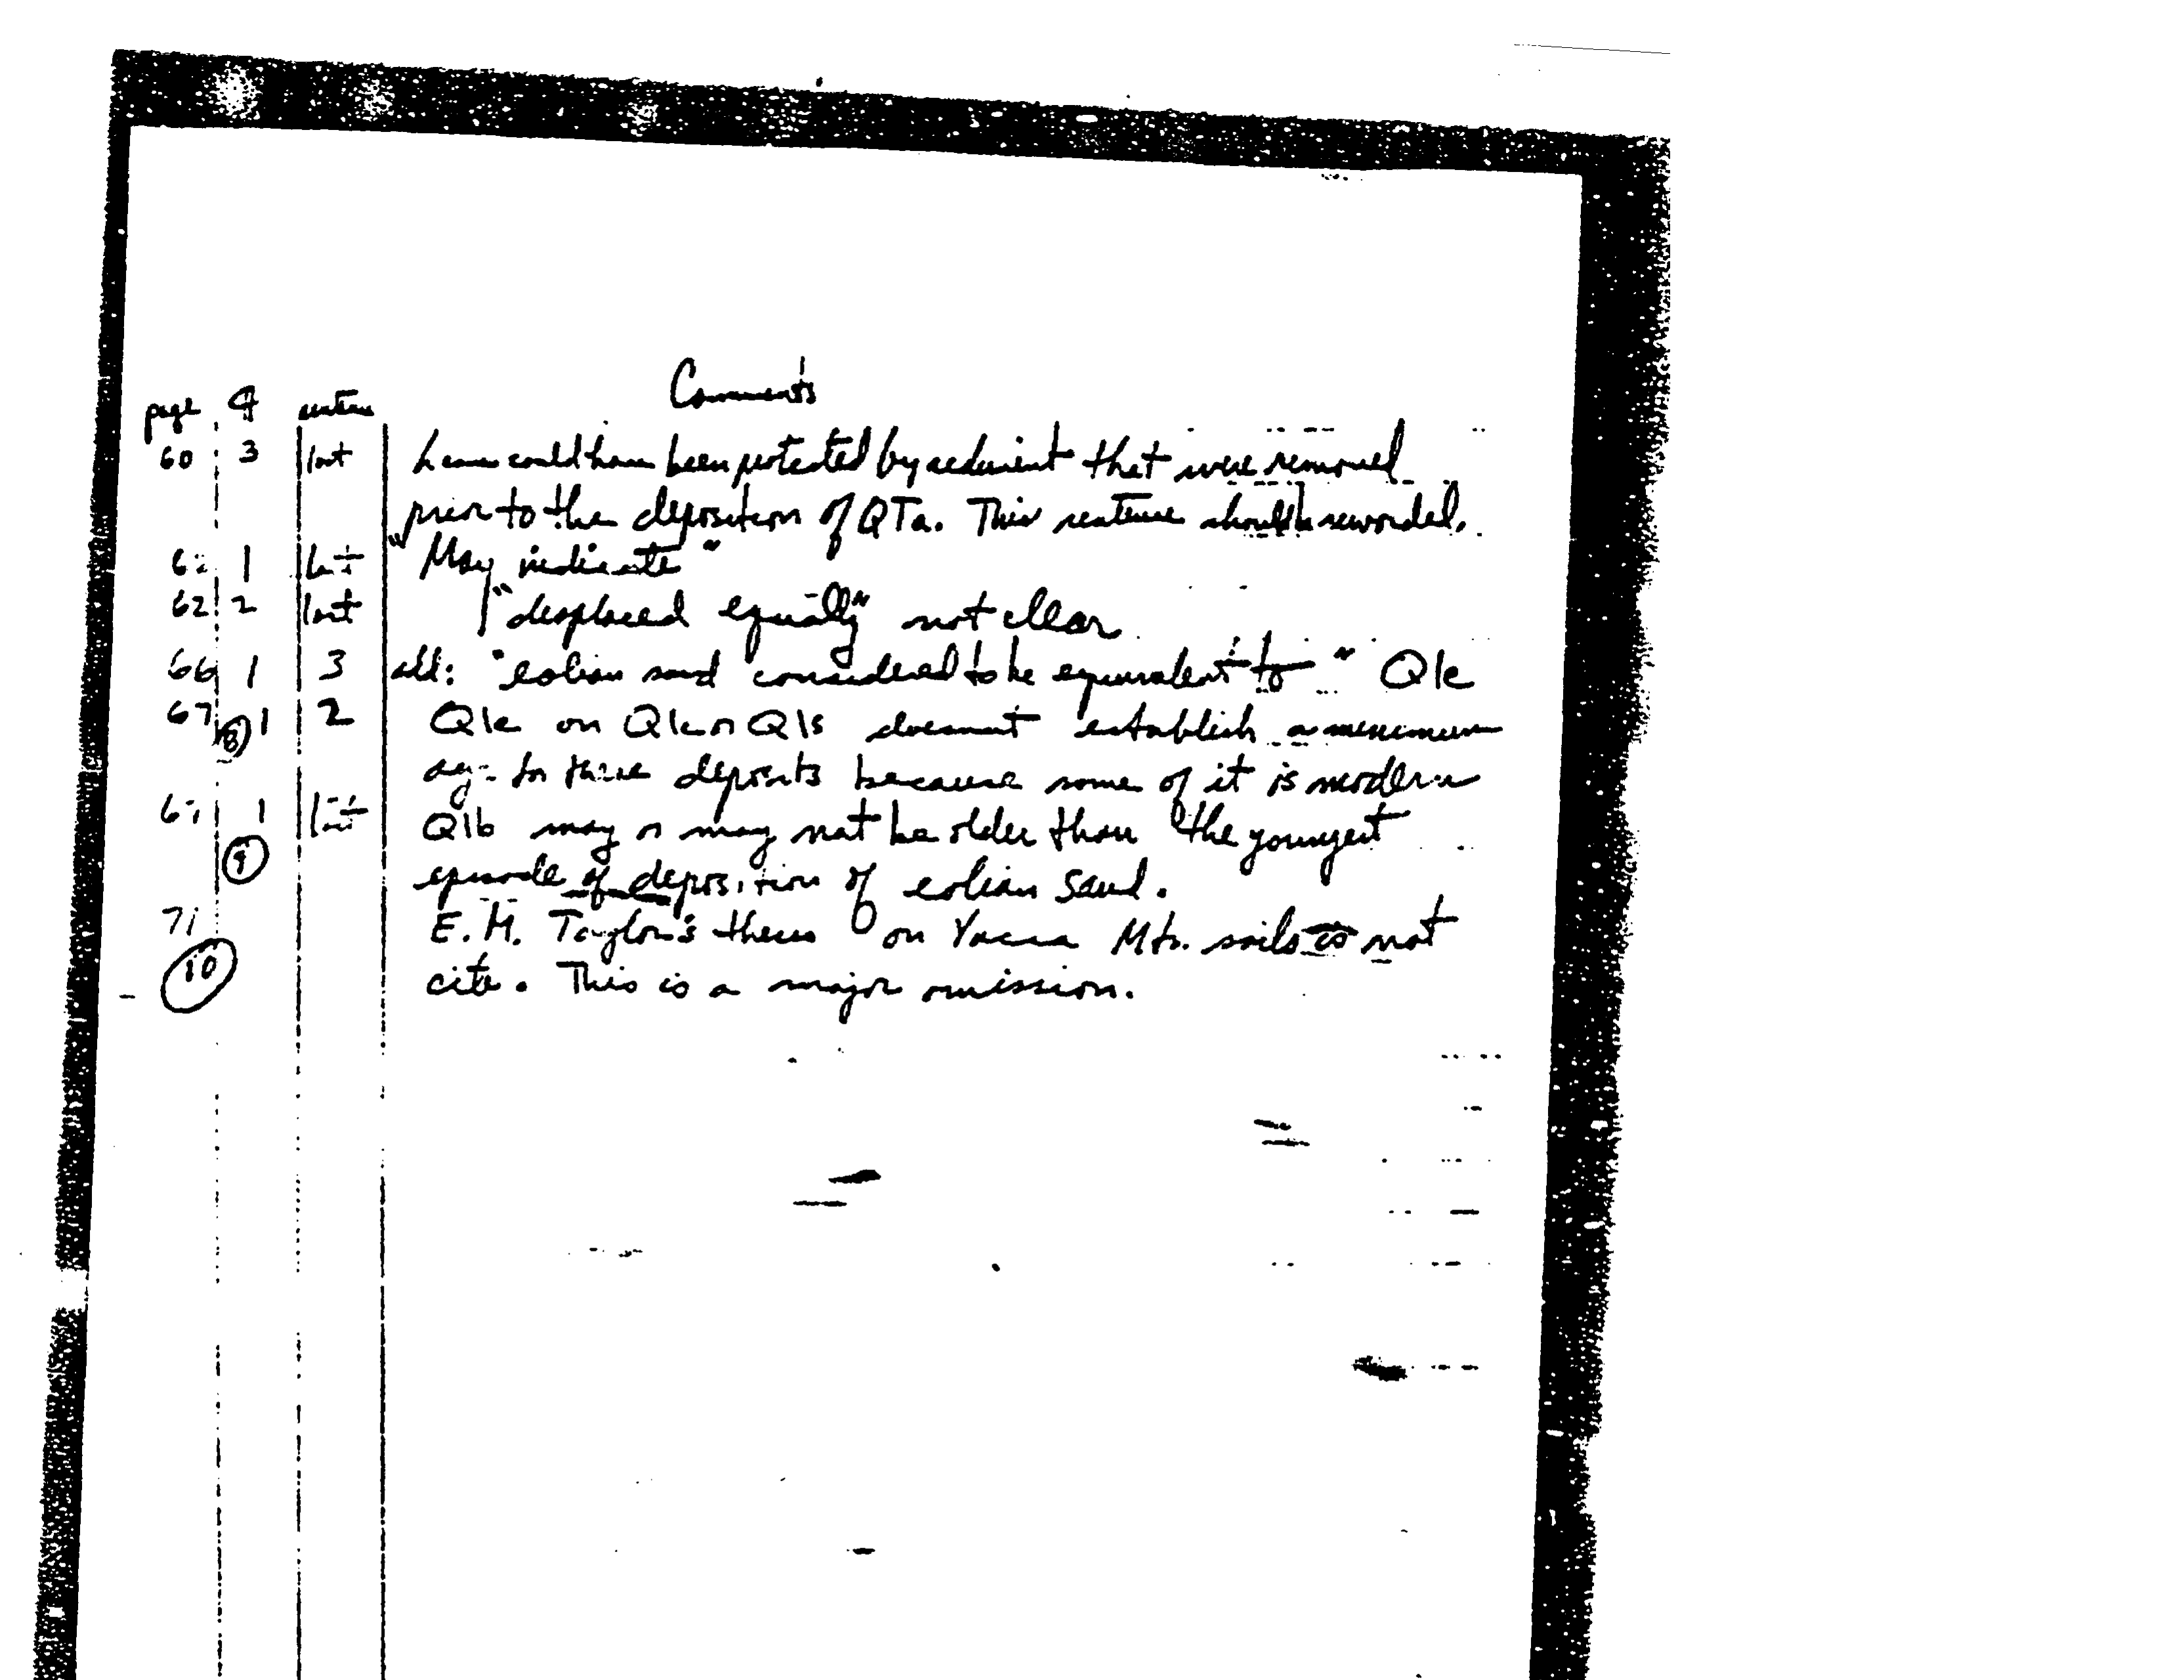 Comments
page ¶ sentence
60 3 last could have been protected by sediment that were removed
prior to the deposition of QTa. This sentence should be reworded.
62 1 last "May indicate"
62 2 last "displaced equally" not clear
66 1 3 add: "eolian sand considered to be equivalent to" Q1e
67 1 2 Q1e on Q1c or Q1s doesn't establish a minimum
(8)
age for these deposits because some of it is modern
1 last Q1b may or may not be older than the youngest
(9)
episode of deposition of eolian sand.
71 E.M. Taylor's thesis on Yucca Mtn. soils is not
(10)
cite. This is a major omission.